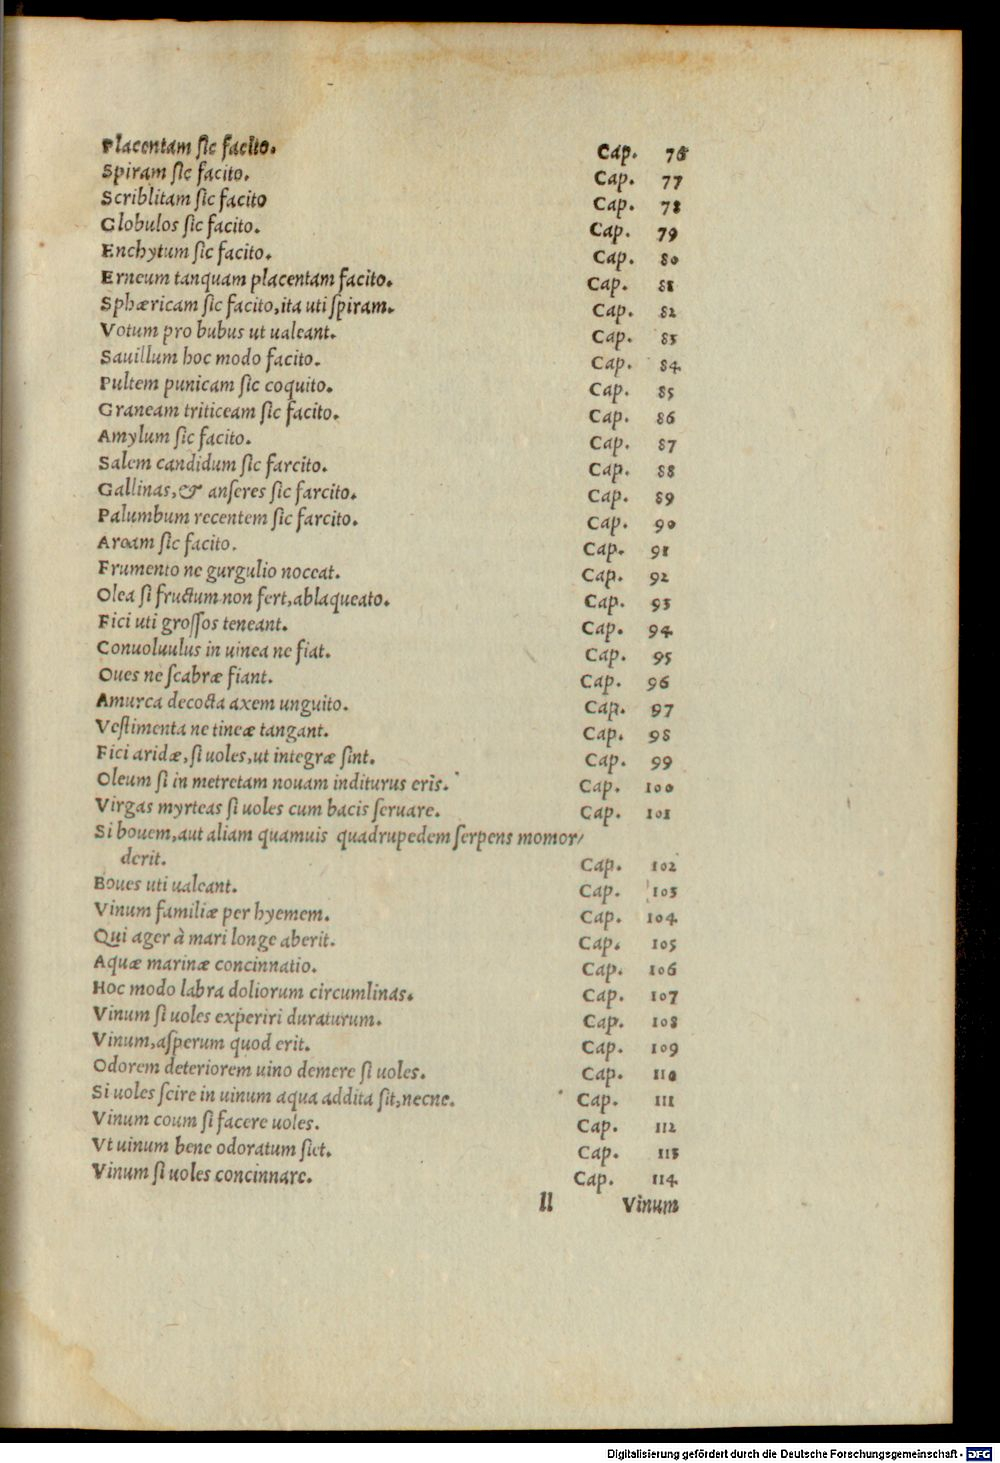 Placentam ſic facito. Cap. 76
Spiram ſic facito. Cap. 77
Scriblitam ſic facito Cap. 78
Globulos ſic facito. Cap. 79
Enchytum ſic facito. Cap. 80
Erneum tanquam placentam facito. Cap. 81
Sphæricam ſic facito, ita uti ſpiram. Cap. 82
Votum pro bubus ut ualeant. Cap. 83
Sauillum hoc modo facito. Cap. 84
Pultem punicam ſic coquito. Cap. 85
Graneam triticeam ſic facito. Cap. 86
Amylum ſic facito. Cap. 87
Salem candidum ſic farcito. Cap. 88
Gallinas, & anſeres ſic farcito. Cap. 89
Palumbum recentem ſic farcito. Cap. 90
Aream ſic facito. Cap. 91
Frumento ne gurgulio noceat. Cap. 92
Olea ſi fructum non fert, ablaqueato. Cap. 93
Fici uti groſſos teneant. Cap. 94
Conuoluulus in uinea ne fiat. Cap. 95
Oues ne ſcabræ fiant. Cap. 96
Amurca decocta axem unguito. Cap. 97
Veſtimenta ne tineæ tangant. Cap. 98
Fici aridæ, ſi uoles, ut integræ ſint. Cap. 99
Oleum ſi in metretam nouam inditurus eris. Cap. 100
Virgas myrteas ſi uoles cum bacis ſeruare. Cap. 101
Si bouem, aut aliam quamuis quadrupedem ſerpens momor/
derit. Cap. 102
Boues uti ualeant. Cap. 103
Vinum familiæ per hyemem. Cap. 104
Qui ager à mari longe aberit. Cap. 105
Aquæ marinæ concinnatio. Cap. 106
Hoc modo labra doliorum circumlinas. Cap. 107
Vinum ſi uoles experiri duraturum. Cap. 108
Vinum, aſperum quod erit. Cap. 109
Odorem deteriorem uino demere ſi uoles. Cap. 110
Si uoles ſcire in uinum aqua addita ſit, necne. Cap. 111
Vinum coum ſi facere uoles. Cap. 112
Vt uinum bene odoratum ſiet. Cap. 113
Vinum ſi uoles concinnare. Cap. 114
ll Vinum
Digitalisierung gefördert durch die Deutsche Forschungsgemeinschaft - DFG